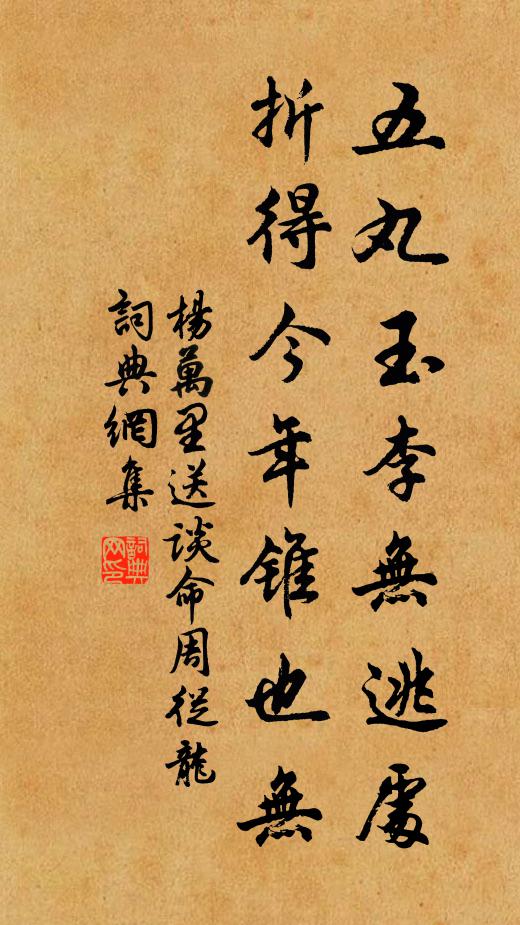 五丸玉李無逃處
折得今年錐也無
楊萬里送談命周從龍
詞典網集
詞典網印